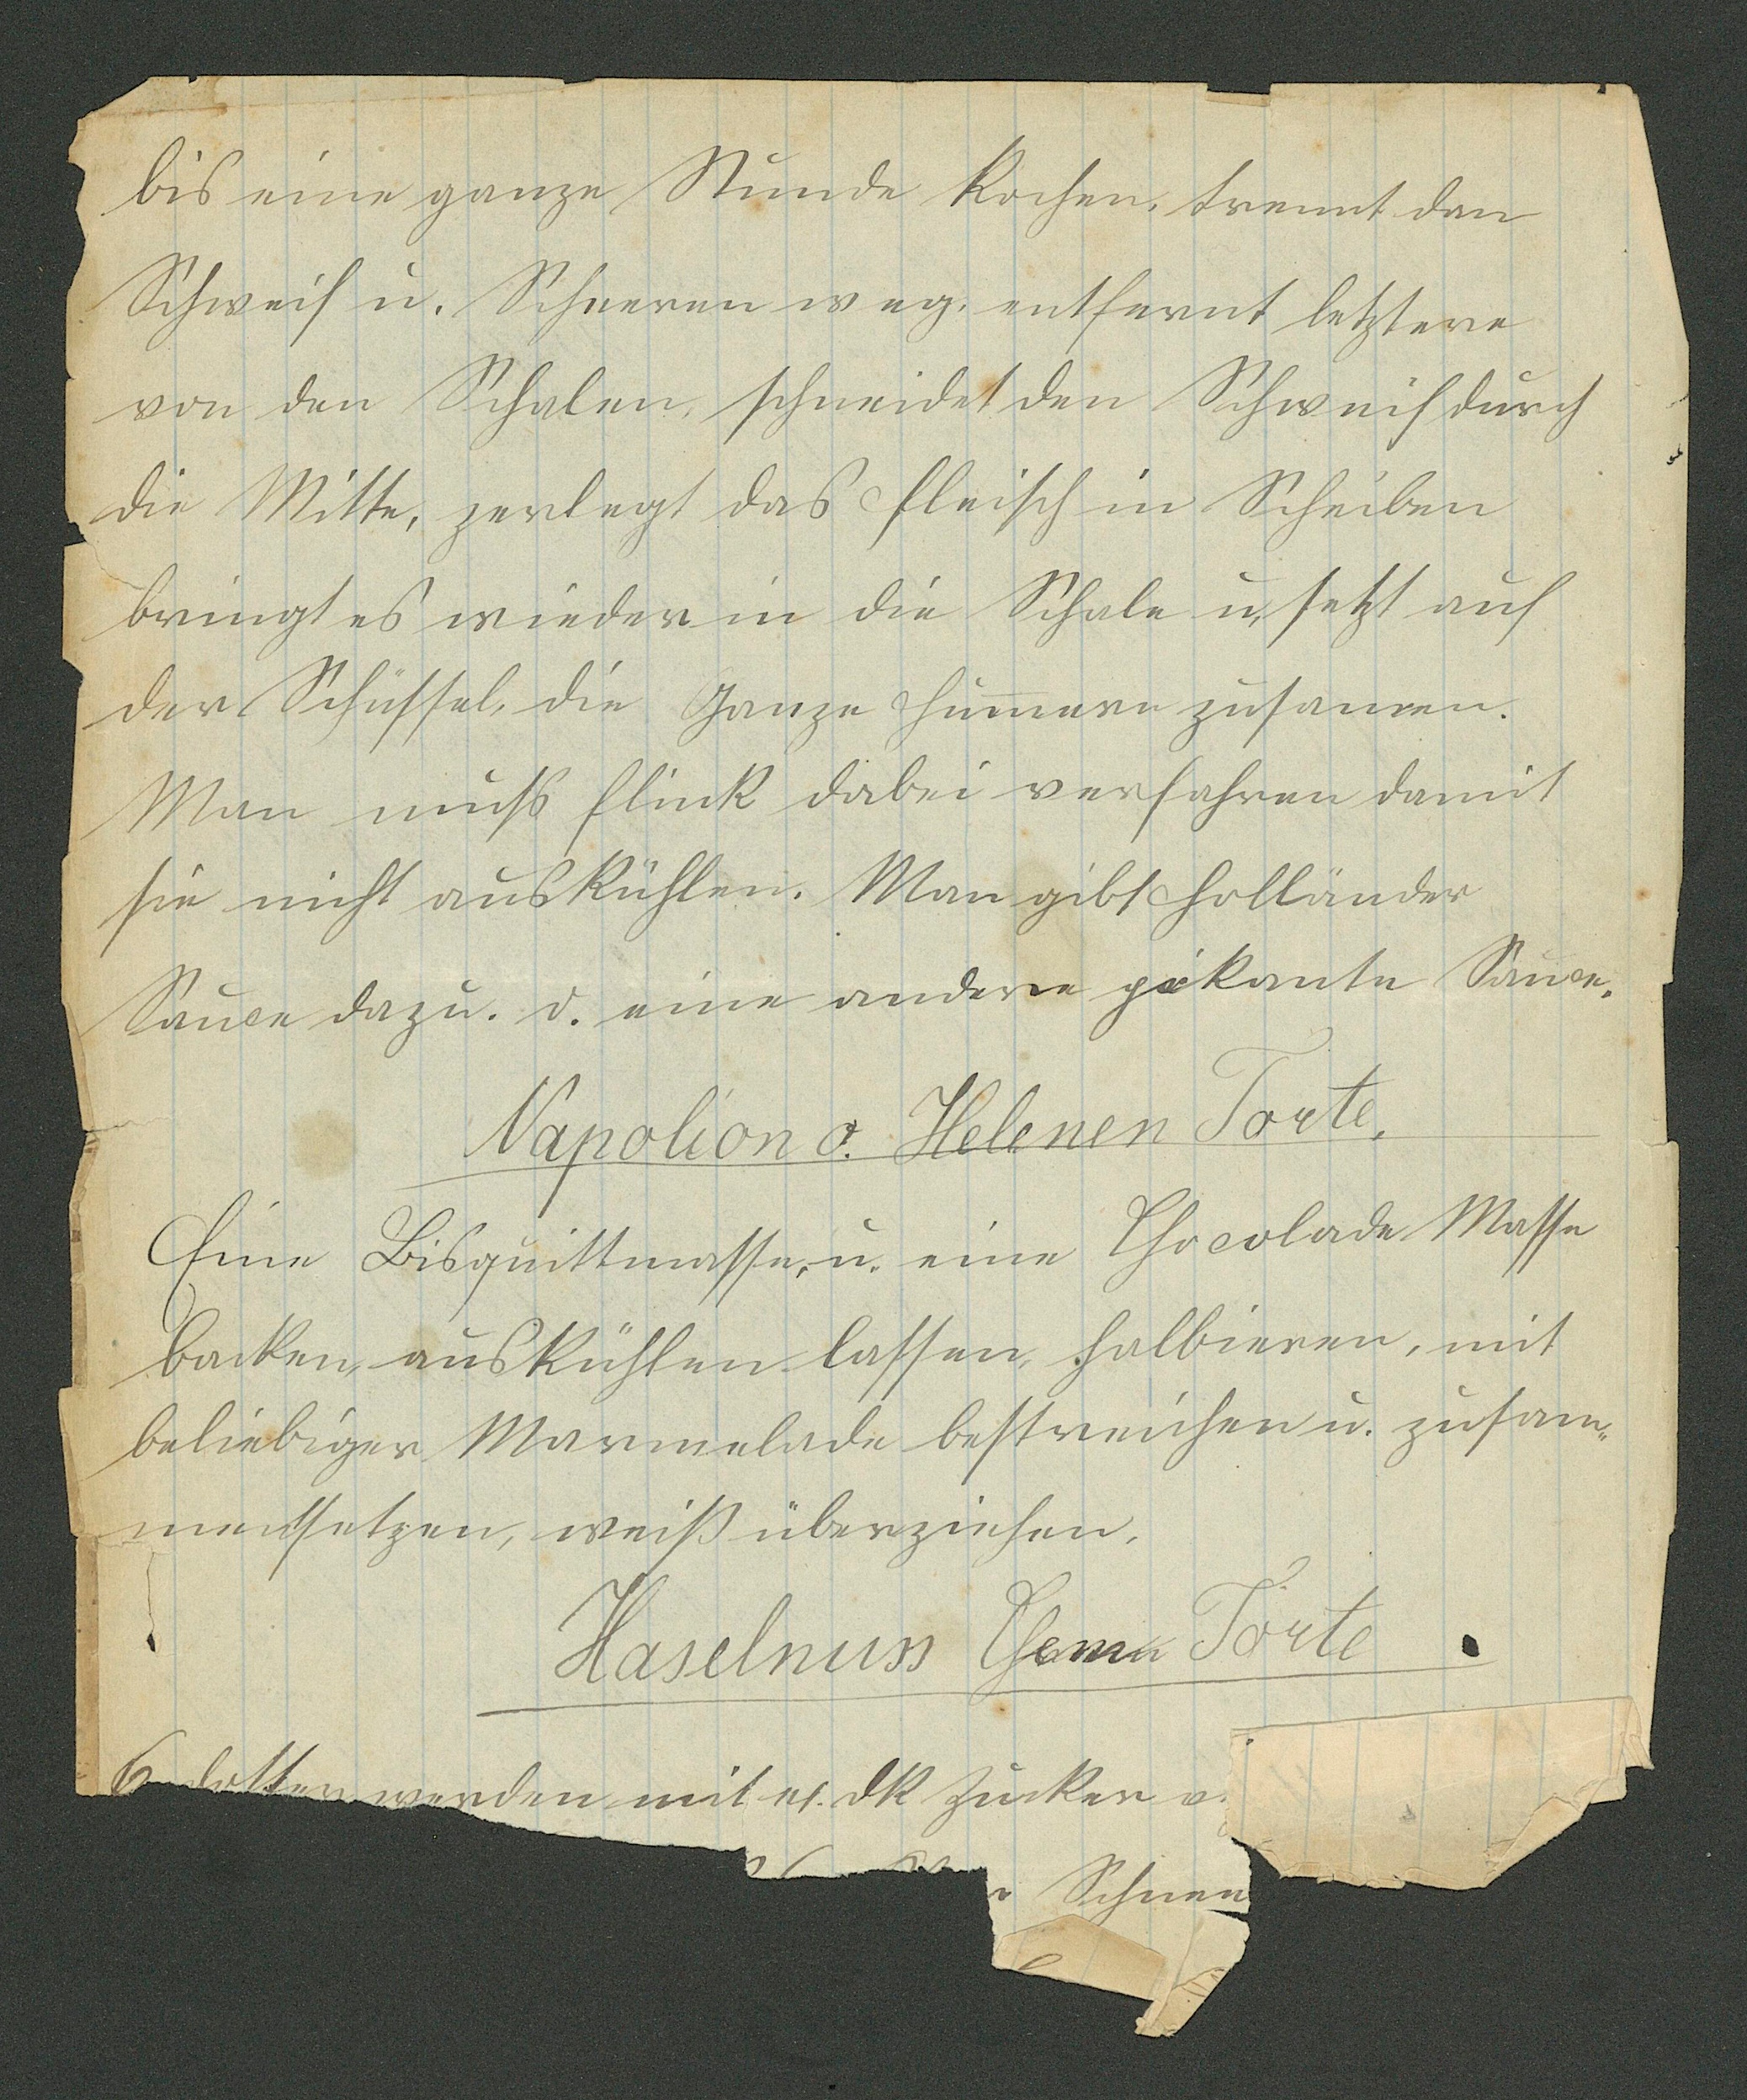 bis eine ganze Stunde kochen, trennt dan
Schweif u. Scheeren weg, entfernt letztere
von den Schalen, schneidet den Schweif durch
die Mitte, zerlegt das Fleisch in Scheiben
bringt es wieder in die Schale u. setzt auf
der Schüssel, die Ganze Hummern zusamen.
Man muß flink dabei verfahren damit
sie nicht auskühlen. Man gibt Holländer
Sauce dazu. o. eine andere pikante Sauce.
Napolion o. Helenen Torte.
Eine Bisquittmasse, u. eine Chocolade Masse
backen, auskühlen lassen, halbieren, mit
beliebiger Marmelade bestreichen u. zusam„
mensetzen, weiß überziehen.
Haselnuss Torte
6 dotter werden mit dk Zucker
Schnee